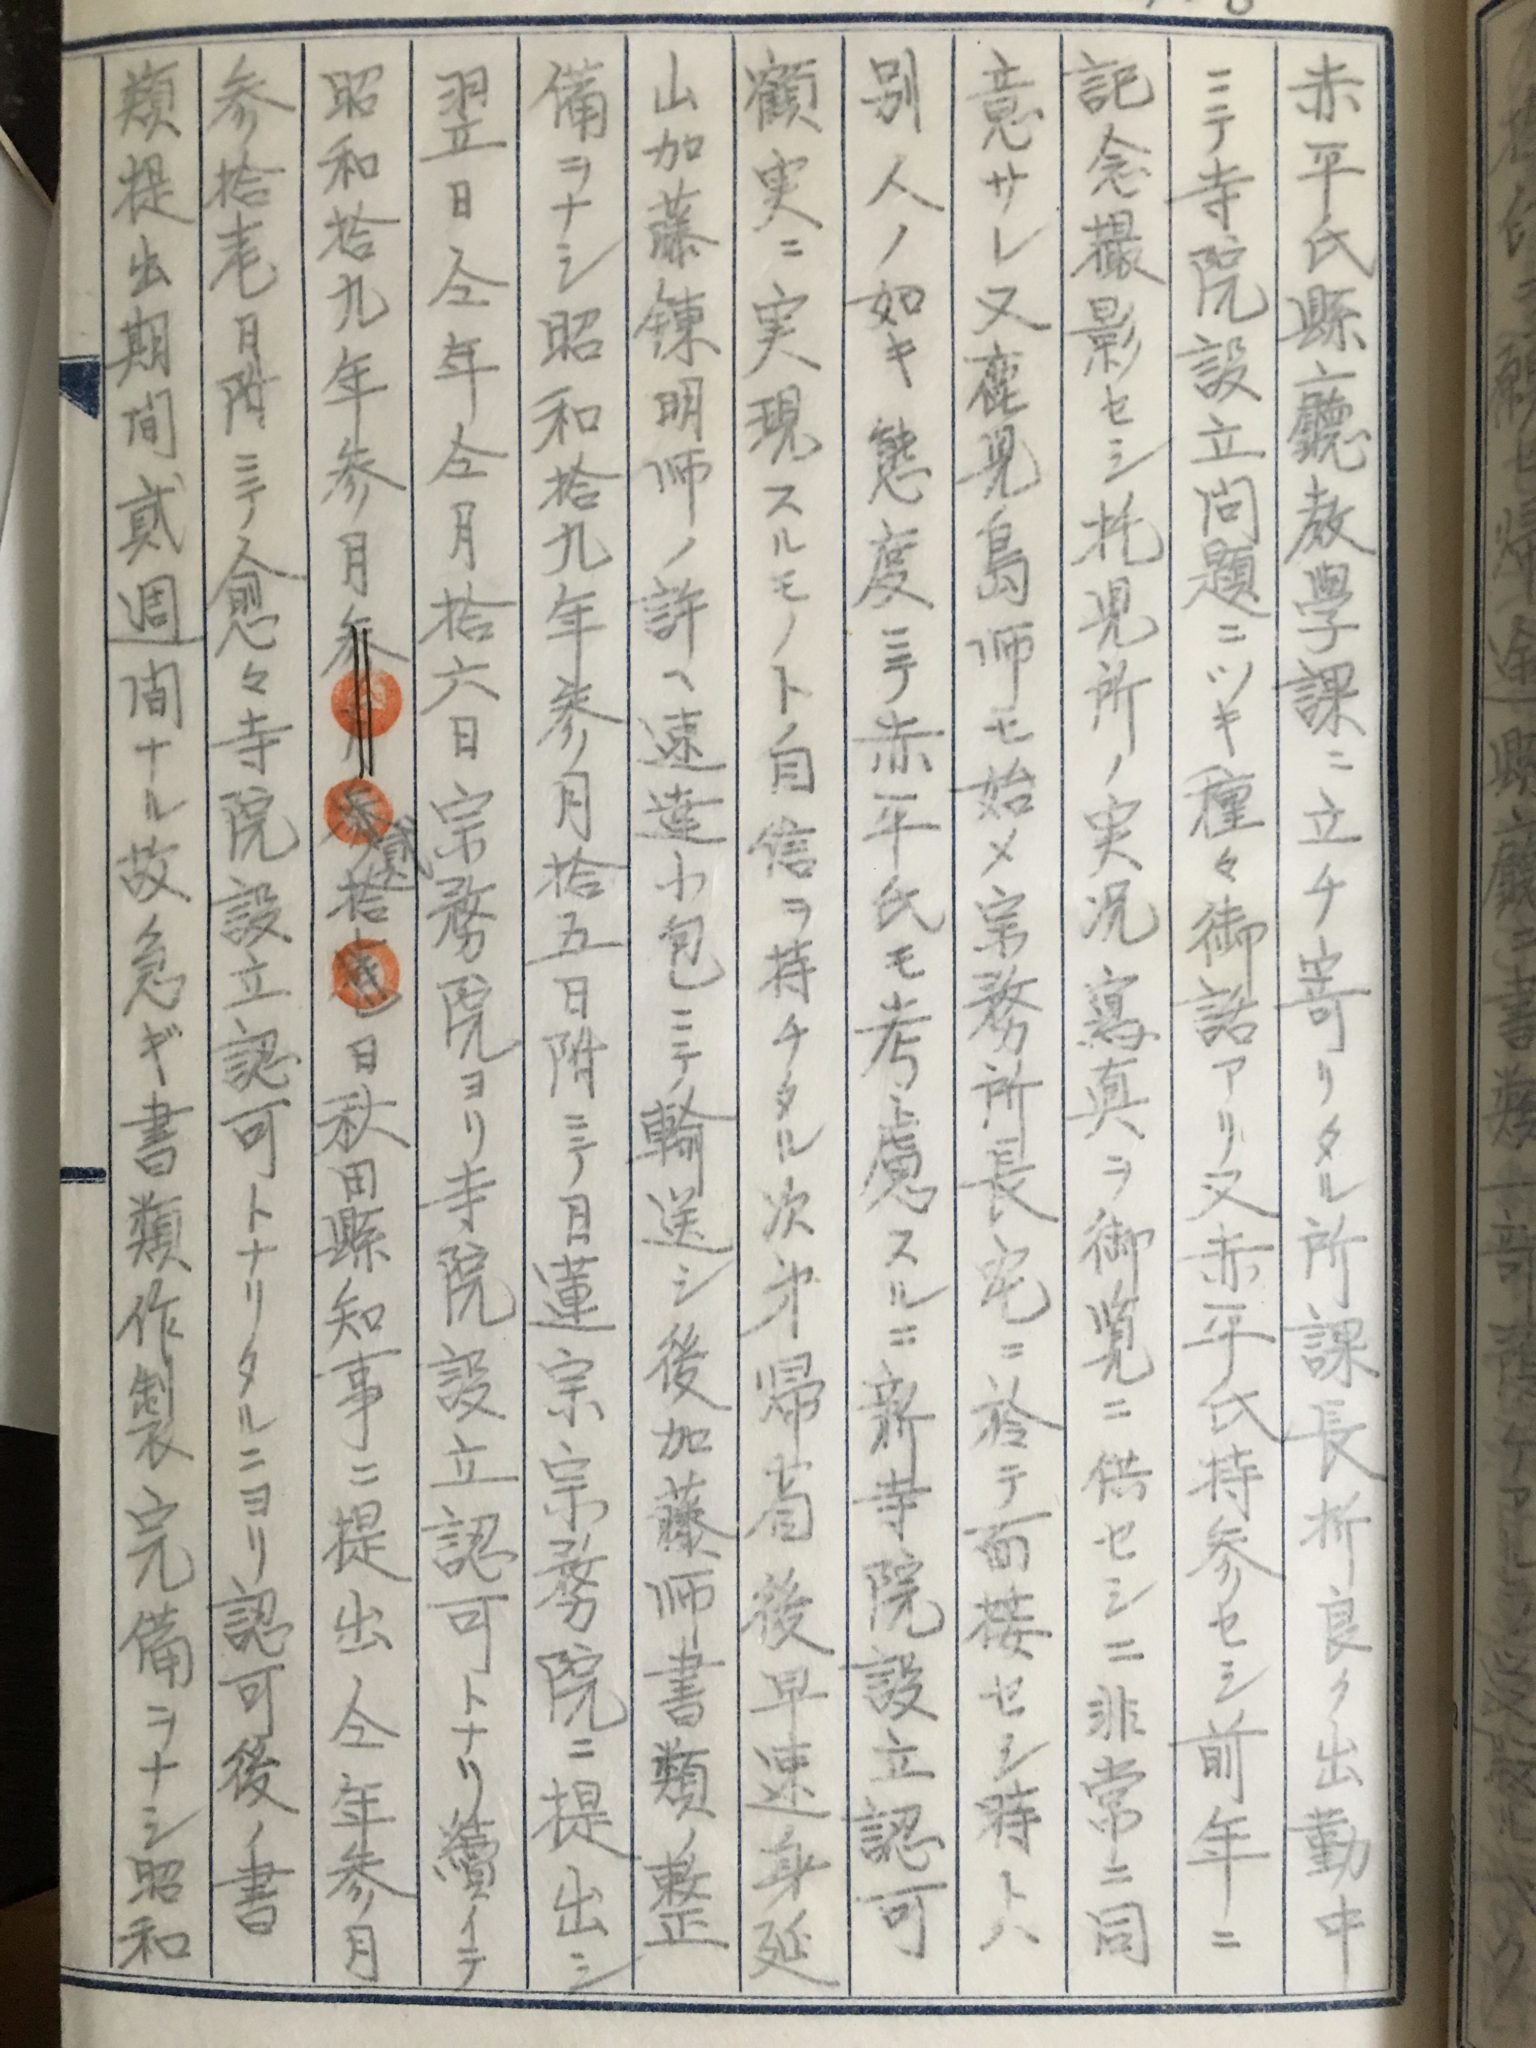 赤平氏縣廳教學課ニ立チ寄リタル所課長折良ク出勤中
ニテ寺院設立問題ニツキ種々御話アリ又赤平氏持参セシ前年ニ
記念撮影セシ托児所ノ実况寫真ヲ御覧ニ供セシニ非常ニ同
意サレ又鹿児島师モ始メ宗務所長宅ニ於テ面接セシ時トハ
别人ノ如キ態度ニテ赤平氏モ考ト慮スルニ新寺院設立認可
願実ニ実現スルモノト自信ヲ持チタル次第帰省後早速身延
山加藤錬明师ノ許へ速達小包ニテ輸送シ後加藤师書類ノ整
備ヲナシ昭和拾九年参月拾五日附ニテ日蓮宗宗務院ニ提出シ
翌日仝年仝月拾六日宗務院ヨリ寺院設立認可トナリ續イテ
昭和拾九年参月参貳拾日秋田縣知事ニ提出仝年参月
参拾壱日附ニテ愈々寺院設立認可トナリタルニヨリ認可後ノ書
類提出期間貳週間ナル故急ギ書類作製完備ヲナシ昭和